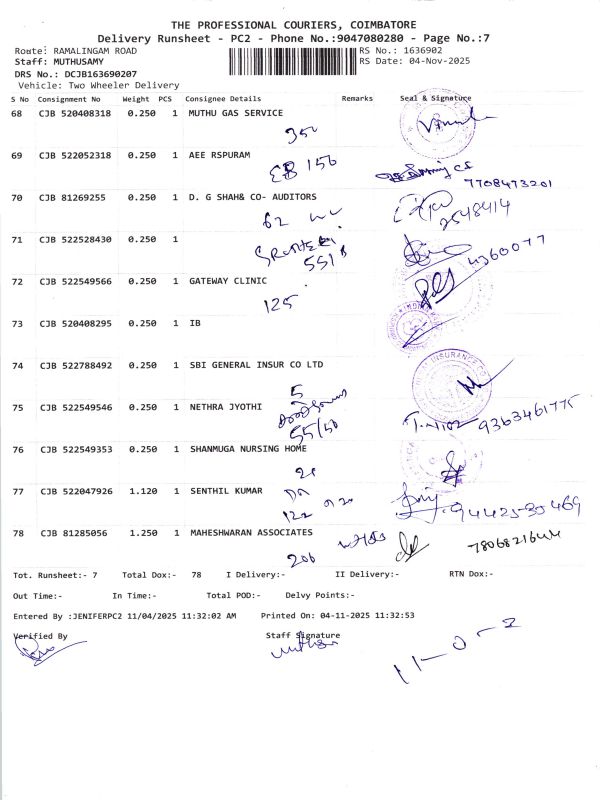 THE PROFESSIONAL COURIERS, COIMBATORE
Delivery Runsheet - PC2 - Phone No.:9047080280 - Page No.:7
Route: RAMALINGAM ROAD RS No.: 1636902
Staff: MUTHUSAMY RS Date: 04-Nov-2025
DRS No.: DCJB163690207
Vehicle: Two Wheeler Delivery
S No Consignment No Weight PCS Consignee Details Remarks Seal & Signature
68 CJB 520408318 0.250 1 MUTHU GAS SERVICE
350
69 CJB 522052318 0.250 1 AEE RSPURAM
EB 150
7708473201
70 CJB 81269255 0.250 1 D. G SHAH& CO- AUDITORS
62
2548414
71 CJB 522528430 0.250 1
551
4360077
72 CJB 522549566 0.250 1 GATEWAY CLINIC
125
73 CJB 520408295 0.250 1 IB
74 CJB 522788492 0.250 1 SBI GENERAL INSUR CO LTD
5
75 CJB 522549546 0.250 1 NETHRA JYOTHI
55/50
9363461775
76 CJB 522549353 0.250 1 SHANMUGA NURSING HOME
20
77 CJB 522047926 1.120 1 SENTHIL KUMAR
122
94425-30469
78 CJB 81285056 1.250 1 MAHESHWARAN ASSOCIATES
206
Tot. Runsheet:- 7 Total Dox:- 78 I Delivery:- II Delivery:- RTN Dox:-
Out Time:- In Time:- Total POD:- Delvy Points:-
Entered By :JENIFERPC2 11/04/2025 11:32:02 AM Printed On: 04-11-2025 11:32:53
Verified By Staff Signature
11-0-2